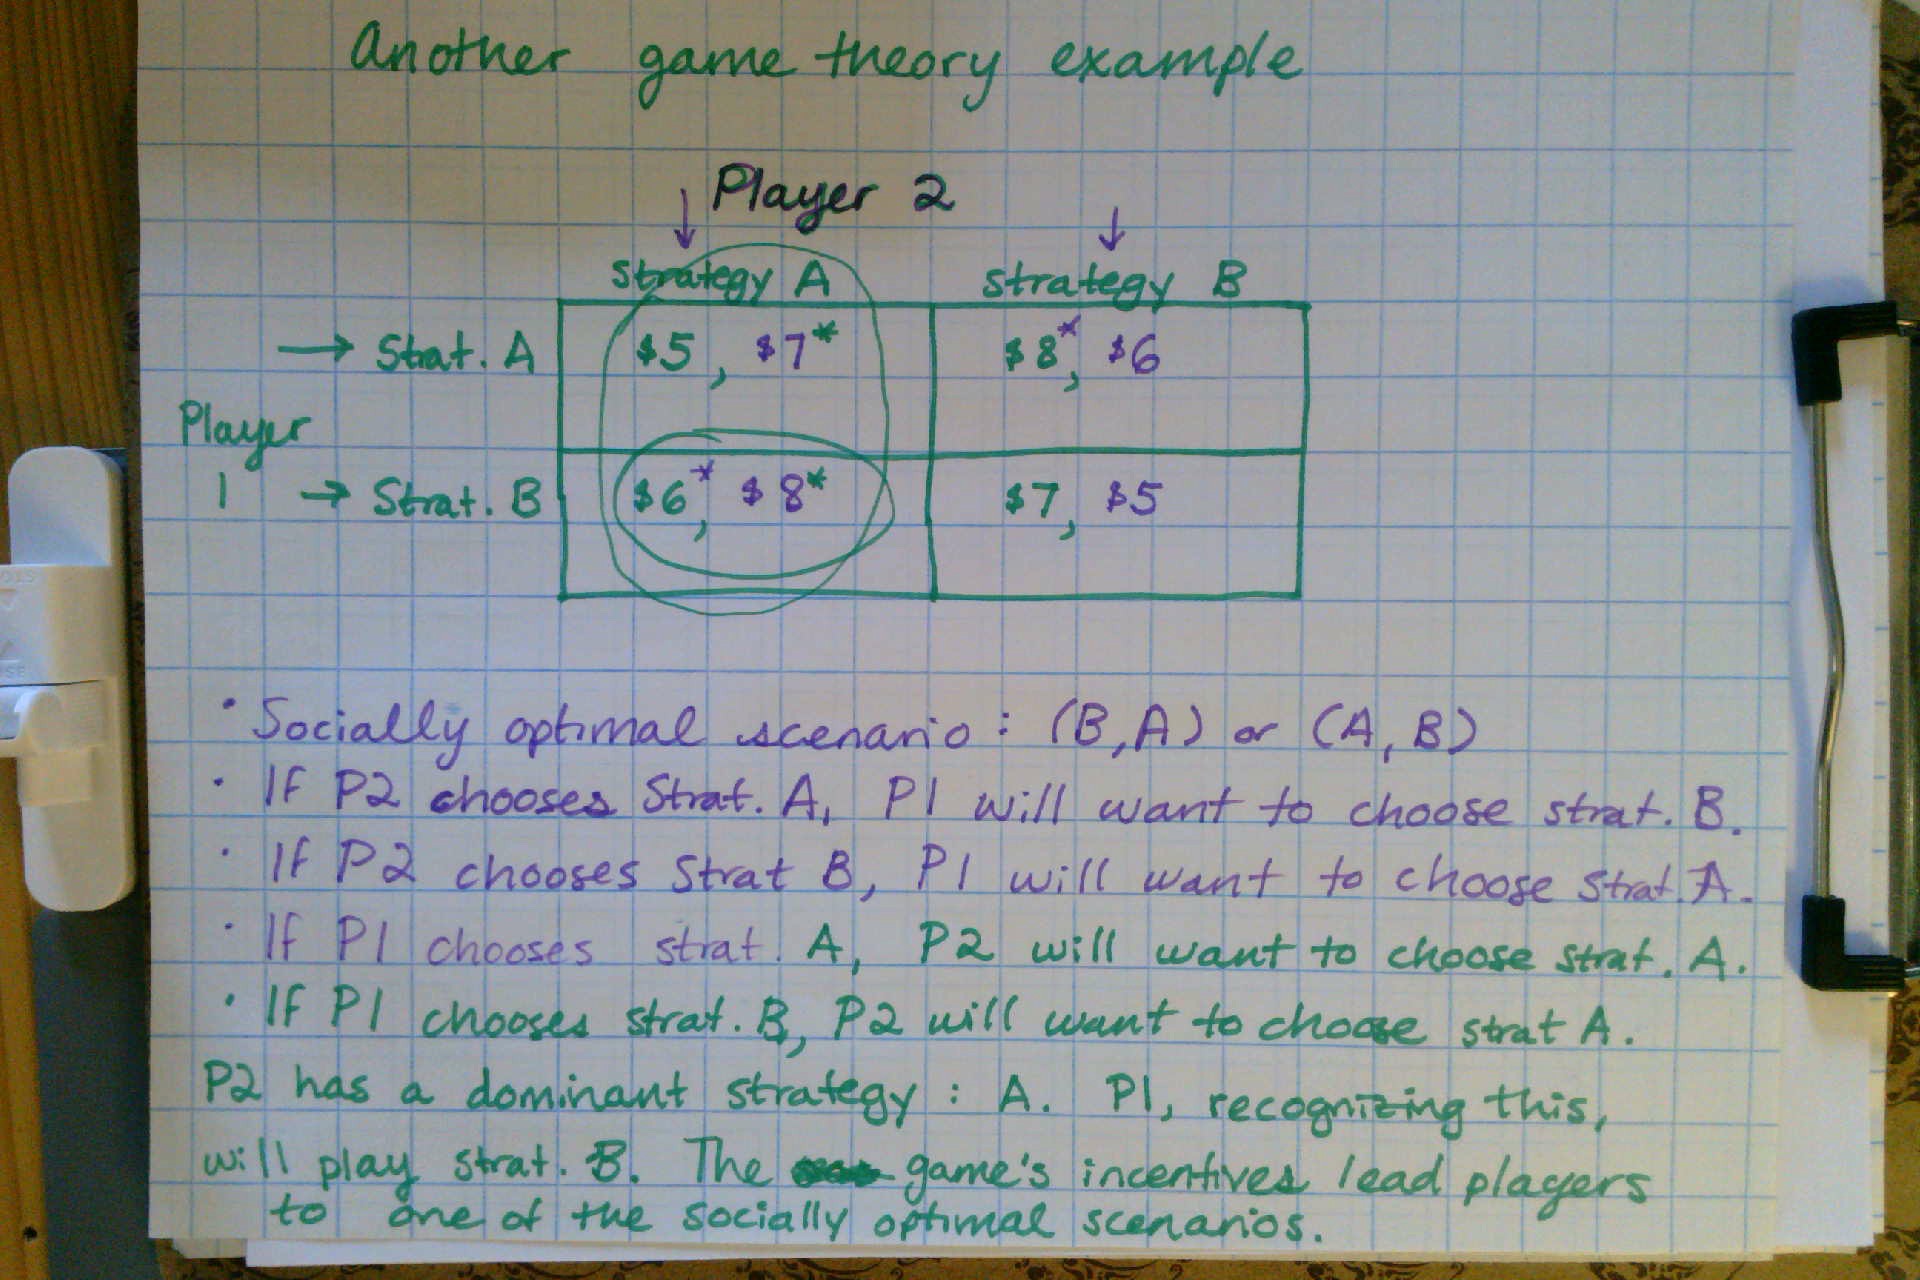 Another game theory example
Player 2
Strategy A strategy B
Strat. A $5, $7* $8*, $6
Player
1 Strat. B $6*, $8* $7, $5
• Socially optimal scenario: (B,A) or (A,B)
• If P2 chooses Strat. A, P1 will want to choose strat. B.
• If P2 chooses Strat B, P1 will want to choose strat. A.
• If P1 chooses strat. A, P2 will want to choose strat. A.
• If P1 chooses strat. B, P2 will want to choose strat A.
P2 has a dominant strategy: A. P1, recognizing this,
will play strat. B. The game's incentives lead players
to one of the socially optimal scenarios.